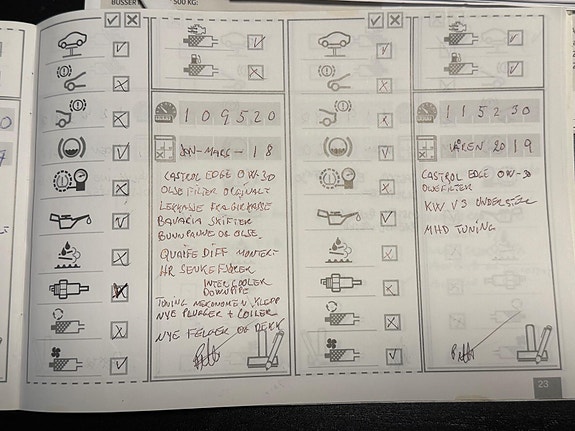 BUSSER
500 KG:
109520
JAN-MARS-18
CASTROL EDGE 0W-30
OLJEFILTER ORGINALT
LEKKASJE FRA GIRKASSE
BAVARIA SKIFTER
BUNNPANNE OG OLJE.
QUAIFE DIFF MONTERT
HR SENKEFJÆRER
INTERCOOLER
DOWNPIPE
TUNING MEKONOMEN KLEPP
NYE PLUGGER + COILER
NYE FELGER OG DEKK
115230
VÅREN 2019
CASTROL EDGE 0W-30
OLJEFILTER
KW V3 UNDERSTELL
MHD TUNING
23